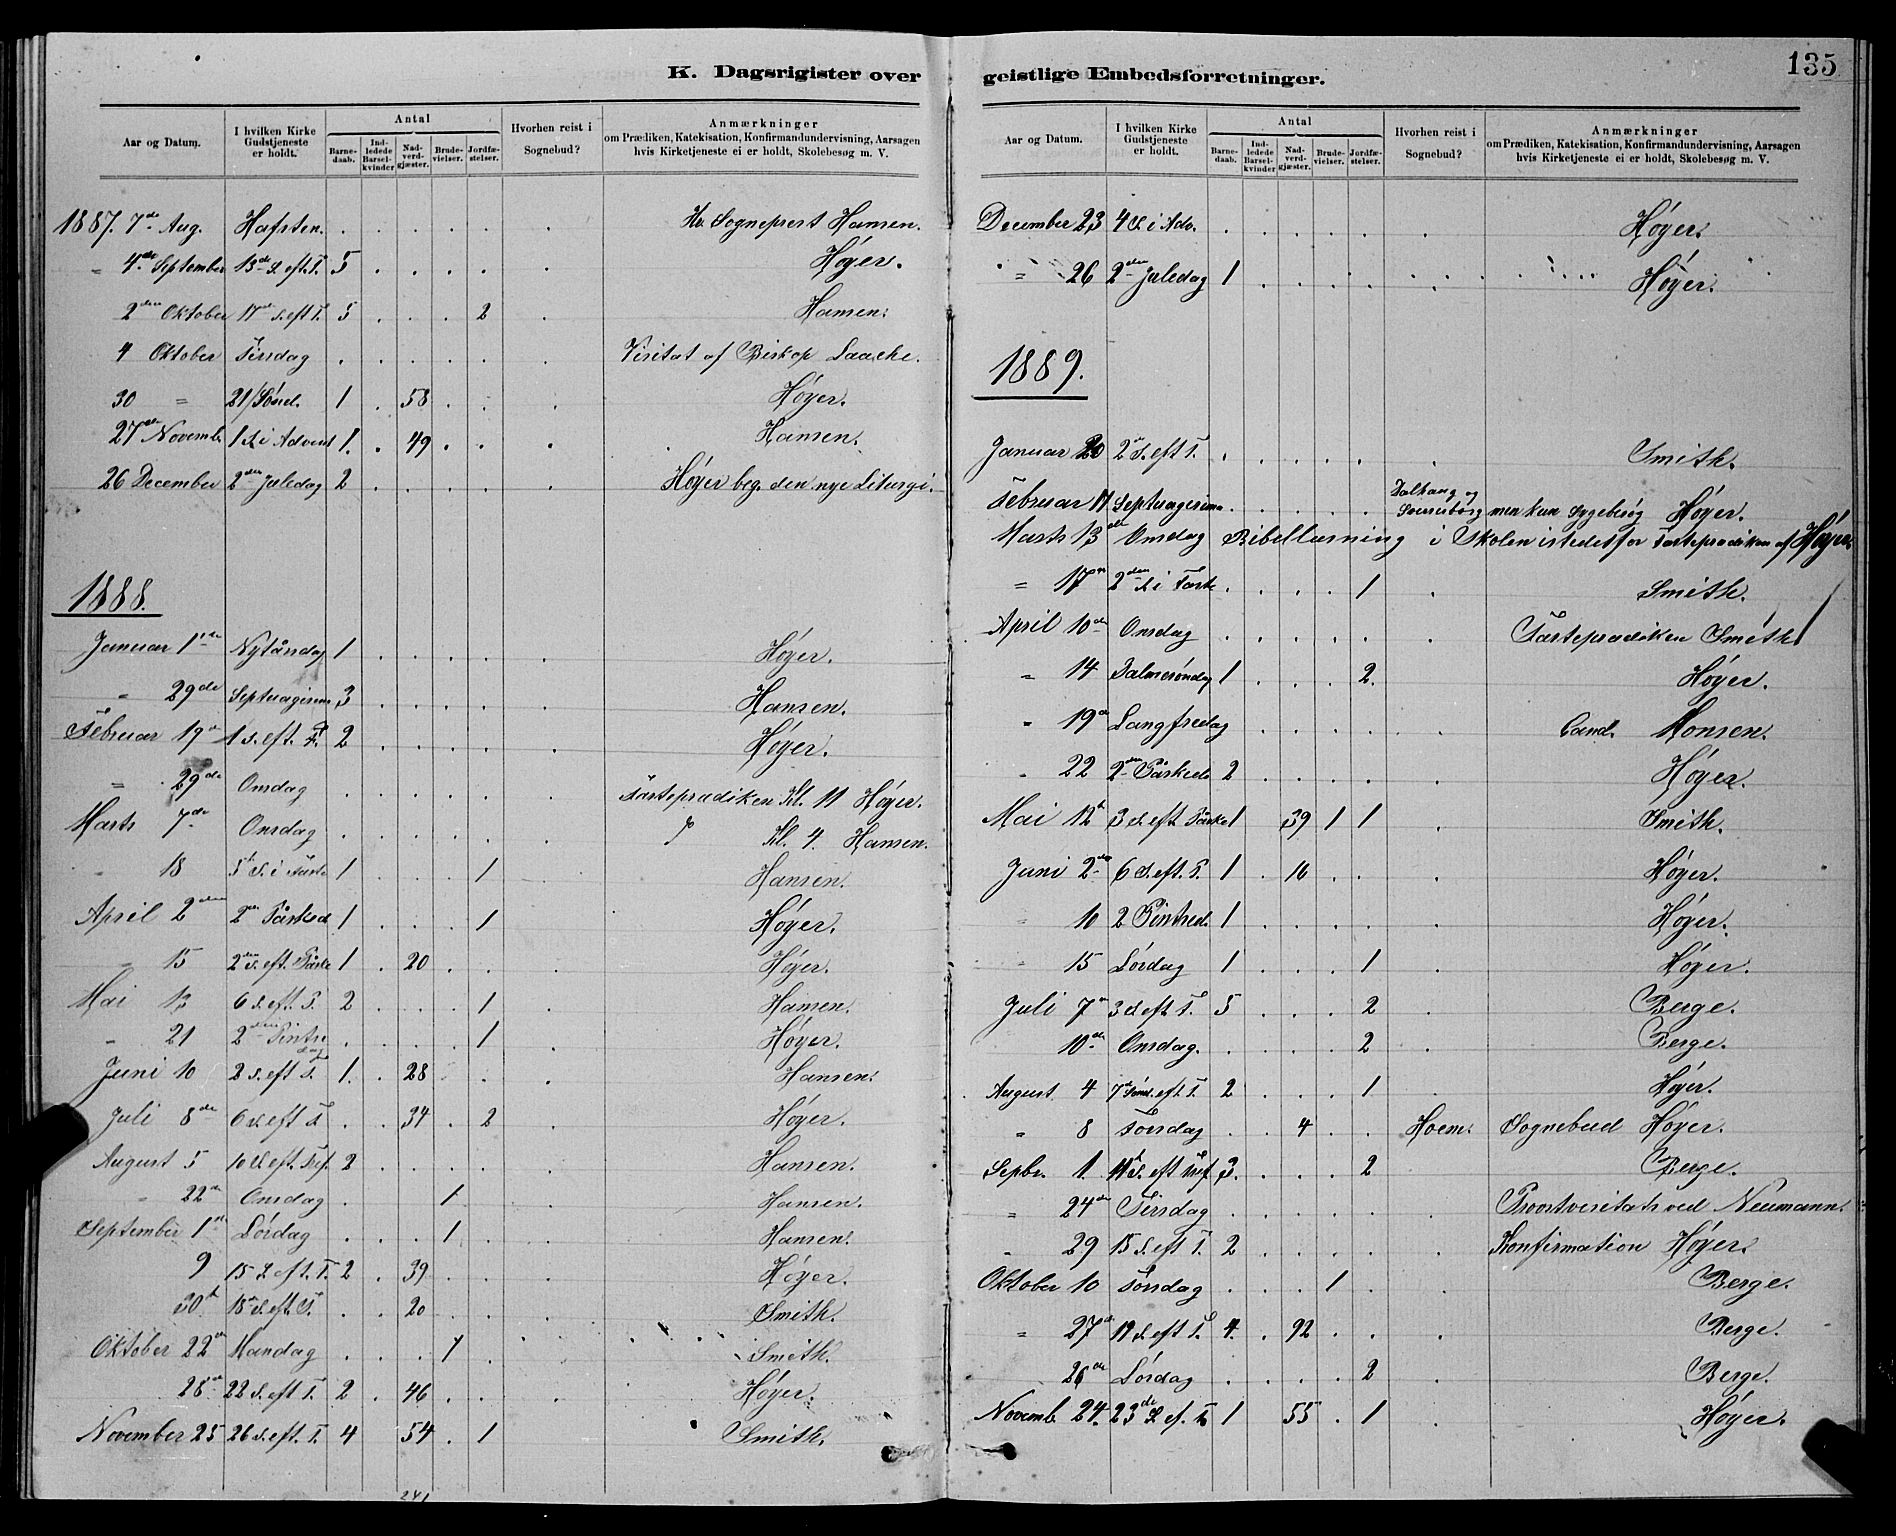 135
K. Dagsrigister over
Aar og Datum. I hvilken Kirke Gudstjeneste er holdt. Antal Barnedaab. Indledede Barselkvinder Nadverdgjæster. Brudevielser. Jordfæstelser. Hvorhen reist i Sognebud? Anmærkninger om Prædiken, Katekisation, Konfirmandundervisning, Aarsagen hvis Kirketjeneste ei er holdt, Skolebesøg m. V.
1887. 7de Aug. Hafsten. Hr. Sogneprest Hansen.
" 4de September 13de S. eft. T. 5 Høyer.
2den Oktober 17de S. eft T. 5 2 Hansen.
4 Oktober Tirsdag Visitat af Biskop Laache.
30 " 21/Sønd. 1 58 Høyer.
27de Novemb. 1 S. i Advent 1. 49 Hansen.
26 December 2den Juledag 2 Høyer beg. den nye Liturgi.
1888.
Januar 1ste Nytårsdag 1 Høyer.
" 29de Septuagesima 3 Hansen.
Februar 19de 1 S. eft. F. 2 Høyer.
" 29de Onsdag Fasteprædiken Kl. 11 Høyer.
Marts 7de Onsdag " Kl. 4. Hansen.
" 18 5te S. i Faste 1 1 Hansen.
April 2den 2den Påsked. 1 1 Høyer.
" 15 2den S. eft. Påske 1 20 Høyer.
Mai 13 6 S. eft. P. 2 1 Hansen.
" 21 2den Pintsedag 1 Høyer.
Juni 10 2 S. eft T. 1. 28 Hansen.
Juli 8de 6 S. eft T. 34 2 Høyer.
August 5 10 S. eft. Tref. 2 Hansen.
" 22de Onsdag 1 Hansen.
September 1ste Lørdag 1 Hansen.
9 15 S. eft. T. 2 39 Høyer.
30te 18de S. eft. T. 20 Smith.
Oktober 22de Mandag 1 Smith.
28de 22 S. eft T. 2 46 Høyer.
November 25 26 S. eft. T. 4 54 1 Smith.
241
geistlige Embedsforretninger.
Aar og Datum. I hvilken Kirke Gudstjeneste er holdt. Antal Barnedaab. Indledede Barselkvinder Nadverdgjæster. Brudevielser. Jordfæstelser. Hvorhen reist i Sognebud? Anmærkninger om Prædiken, Katekisation, Konfirmandundervisning, Aarsagen hvis Kirketjeneste ei er holdt, Skolebesøg m. V.
December 23 4 S. i Adv. Høyer.
" 26 2den Juledag 1 Høyer.
1889.
Januar 20 2 S. eft T. Smith.
Februar 17 Septuagesima og men kun Sygebesøg Høyer.
Marts 13de Onsdag Bibellæsning i Skolen istedetfor Fasteprædiken af Høyer
" 17de 2den S. i Faste 1 Smith.
April 10de Onsdag Fasteprædiken Smith
" 14 Palmesøndag 1 2. Høyer.
" 19de Langfredag Cand. Monsen.
" 22 2den Påsked. 2 Høyer.
Mai 12te 3 S. eft Påske 1 39 1 1 Smith.
Juni 2den 6 S. eft. P. 1 16 Høyer.
" 10 2 Pintsed. 1 Høyer.
" 15 Lørdag 1 1 Høyer.
Juli 7de 3 S. eft T. 5 2 Berge.
10de Onsdag. 2 Berge.
August 4 7de Sønd. eft. T. 2 1 Høyer.
" 8 Torsdag 4 Hoem. Sognebud Høyer.
Sepbr. 1. 11te S. eft Tref. 3. 2 Berge.
" 24de Tirsdag Provstvisitats ved Neumann.
" 29 15 S. eft T. 2 Konfirmation Høyer.
Oktober 10 Torsdag 1 Berge.
" 27de 19 S. eft T. 4. 92 Berge.
26de Lørdag 2 Berge.
Novemb. 24. 23de S. ef. T. 1 55 1 Høyer.